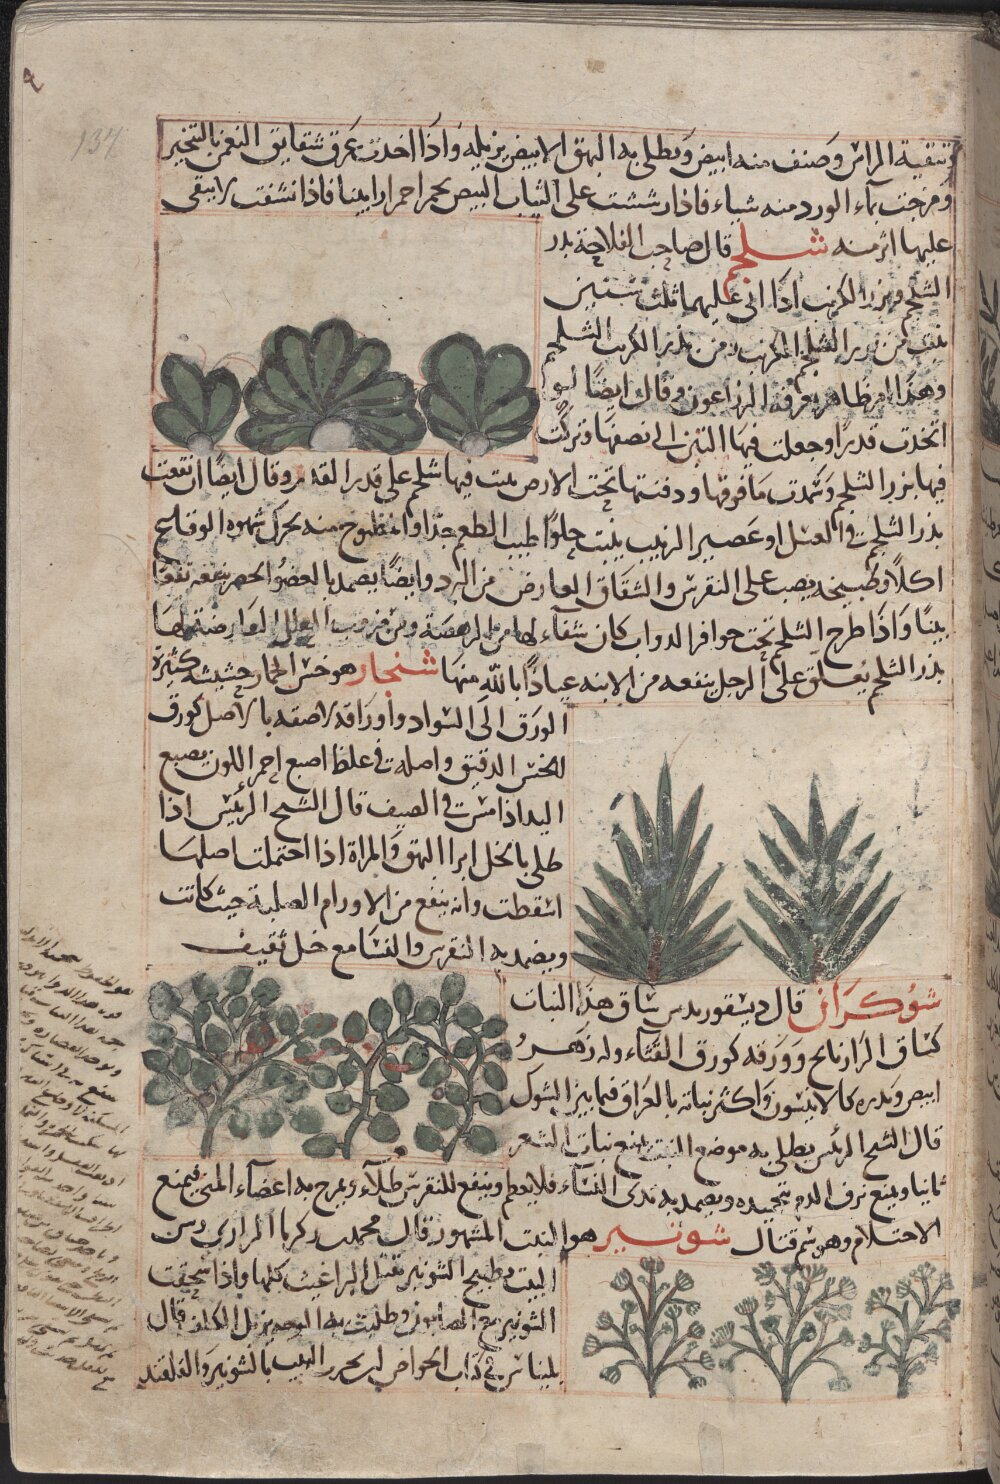 وتنقية الراس وصنف منه ابيض ويطلى به البهق الابيض يزيله واذا اخذت عرق شقايق النعمن بالتخير
ومزجت بماء الورد منه شياء فاذا رششت على الثياب البيض يحمر احمرارا بينا فاذا نشفت لا يبقى
عليها اثر منه شلجم قال صاحب الفلاحة بذر
الشلجم وبزر الكرنب اذا اتى عليهما ثلث سنين
ينبت من بزر الشلجم الكرنب ومن بذر الكرنب الشلجم
وهذا امر ظاهر يعرفه الزراعون وقال ايضا لو
اتخذت قدرا وجعلت فيها التبن الى نصفها وتركت
فيها بزر الشلجم وشمدت ما فوقها ودفنتها تحت الارض ينبت فيها شلجم على قدر القدر وقال ايضا ان نقعت
بذر الشلجم في العسل او عصير الزبيب ينبت حلوا طيب الطعم جدا والمطبوخ منه يحرك شهوة الوقاع
اكلا وطبيخه يصب على النقرس والشقاق العارض من البرد وايضا يضمد بالعضو الحصر ينفع نفعا
بينا واذا طرح الشلجم تحت حوافر الدواب كان شفاء لها من الرهصة ومن ضروب العلل العارضة لها
بذر الشلجم يعلق على الرجل ينفعه من الابنه عياذا بالله منها شنجار هو خس الحمار حشيشة كثيرة
الورق الى السواد واوراقه لاصقه بالاصل كورق
الخس الدقيق واصله في غلظ اصبع احمر اللون يصبغ
اليد اذا مس في الصيف قال الشيخ الرئيس اذا
طلى بالخل ابرا البهق والمراة اذا احتملت اصلها
اسقطت وانه ينفع من الاورام الصلبة حيث كانت
ويضمد به النقرس والنسا مع خل ثقيف
شوكران قال ديسقوريدس ساق هذا النبات
كساق الرازيانج وورقه كورق القثاء وله زهر
ابيض وبذره كالانيسون واكثر نباته بالعراق فيما بين الشوك
قال الشيخ الرئيس يطلى به موضع النتف يمنع نبات الشعر
ثانيا ويمنع نزف الدم بتجميده ويضمد به ثدى النساء فلا يعظم وينفع للنقرس طلاء ويمرخ به اعضاء المنى فيمنع
الاحتلام وهو سم قتال شونيز هو النبت المشهور قال محمد بن زكريا الرازي رش
البيت بطبيخ الشونيز يقتل البراغيث كلها واذا سحقت
الشونيز مع الصابون وطليت به الوجه يزيل الكلف قال
بليناس في كتاب الخواص ان بخر البيت بالشونيز والقلقند
137